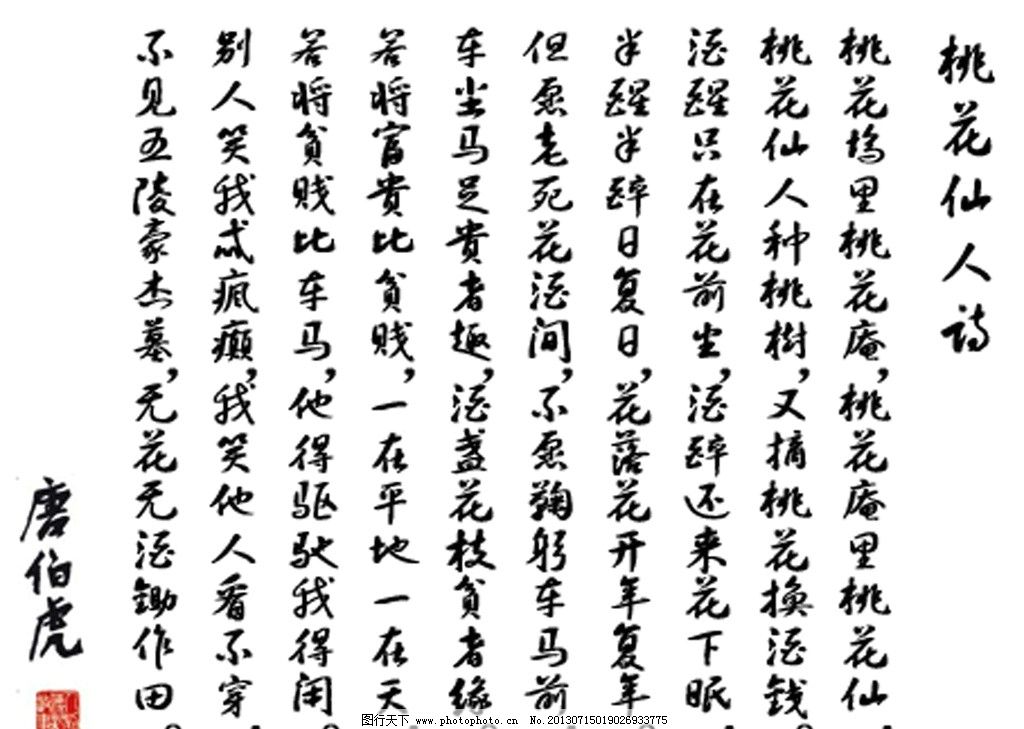 桃花仙人诗
桃花塢里桃花庵,桃花庵里桃花仙
桃花仙人种桃樹,又摘桃花换酒錢
酒醒只在花前坐,酒醉还来花下眠
半醒半醉日复日,花落花开年复年
但愿老死花酒间,不愿鞠躬车马前
车尘马足貴者趣,酒盏花枝貧者缘
若将富貴比貧贱,一在平地一在天
若将貧贱比车马,他得驱驰我得闲
别人笑我忒瘋癲,我笑他人看不穿
不见五陵豪杰墓,无花无酒鋤作田
唐伯虎
图行天下 www.photophoto.cn No.20130715019026933775